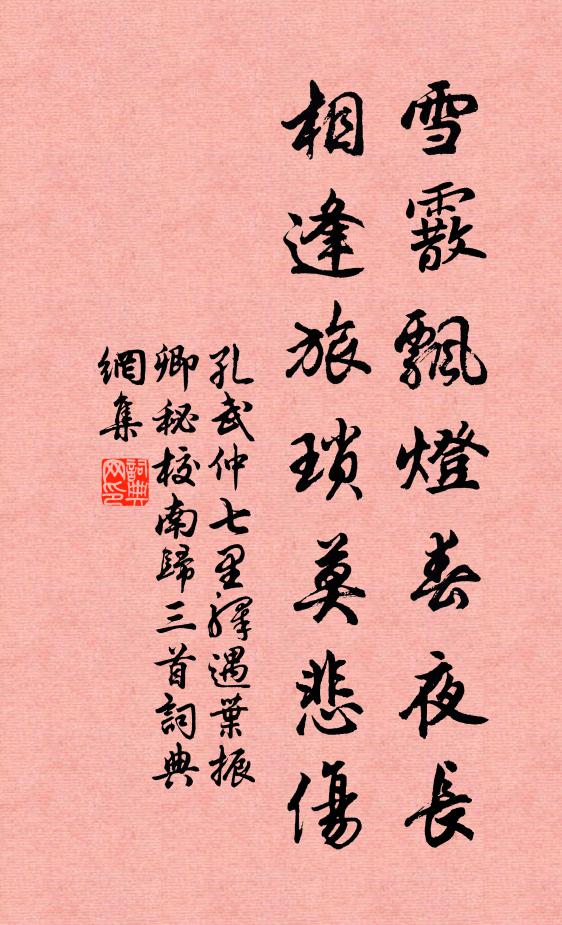 雪霰飄燈春夜長
相逢旅瑣莫悲傷
孔武仲七里驛遇葉振
卿秘校南歸三首詞典
網集
詞典
网印